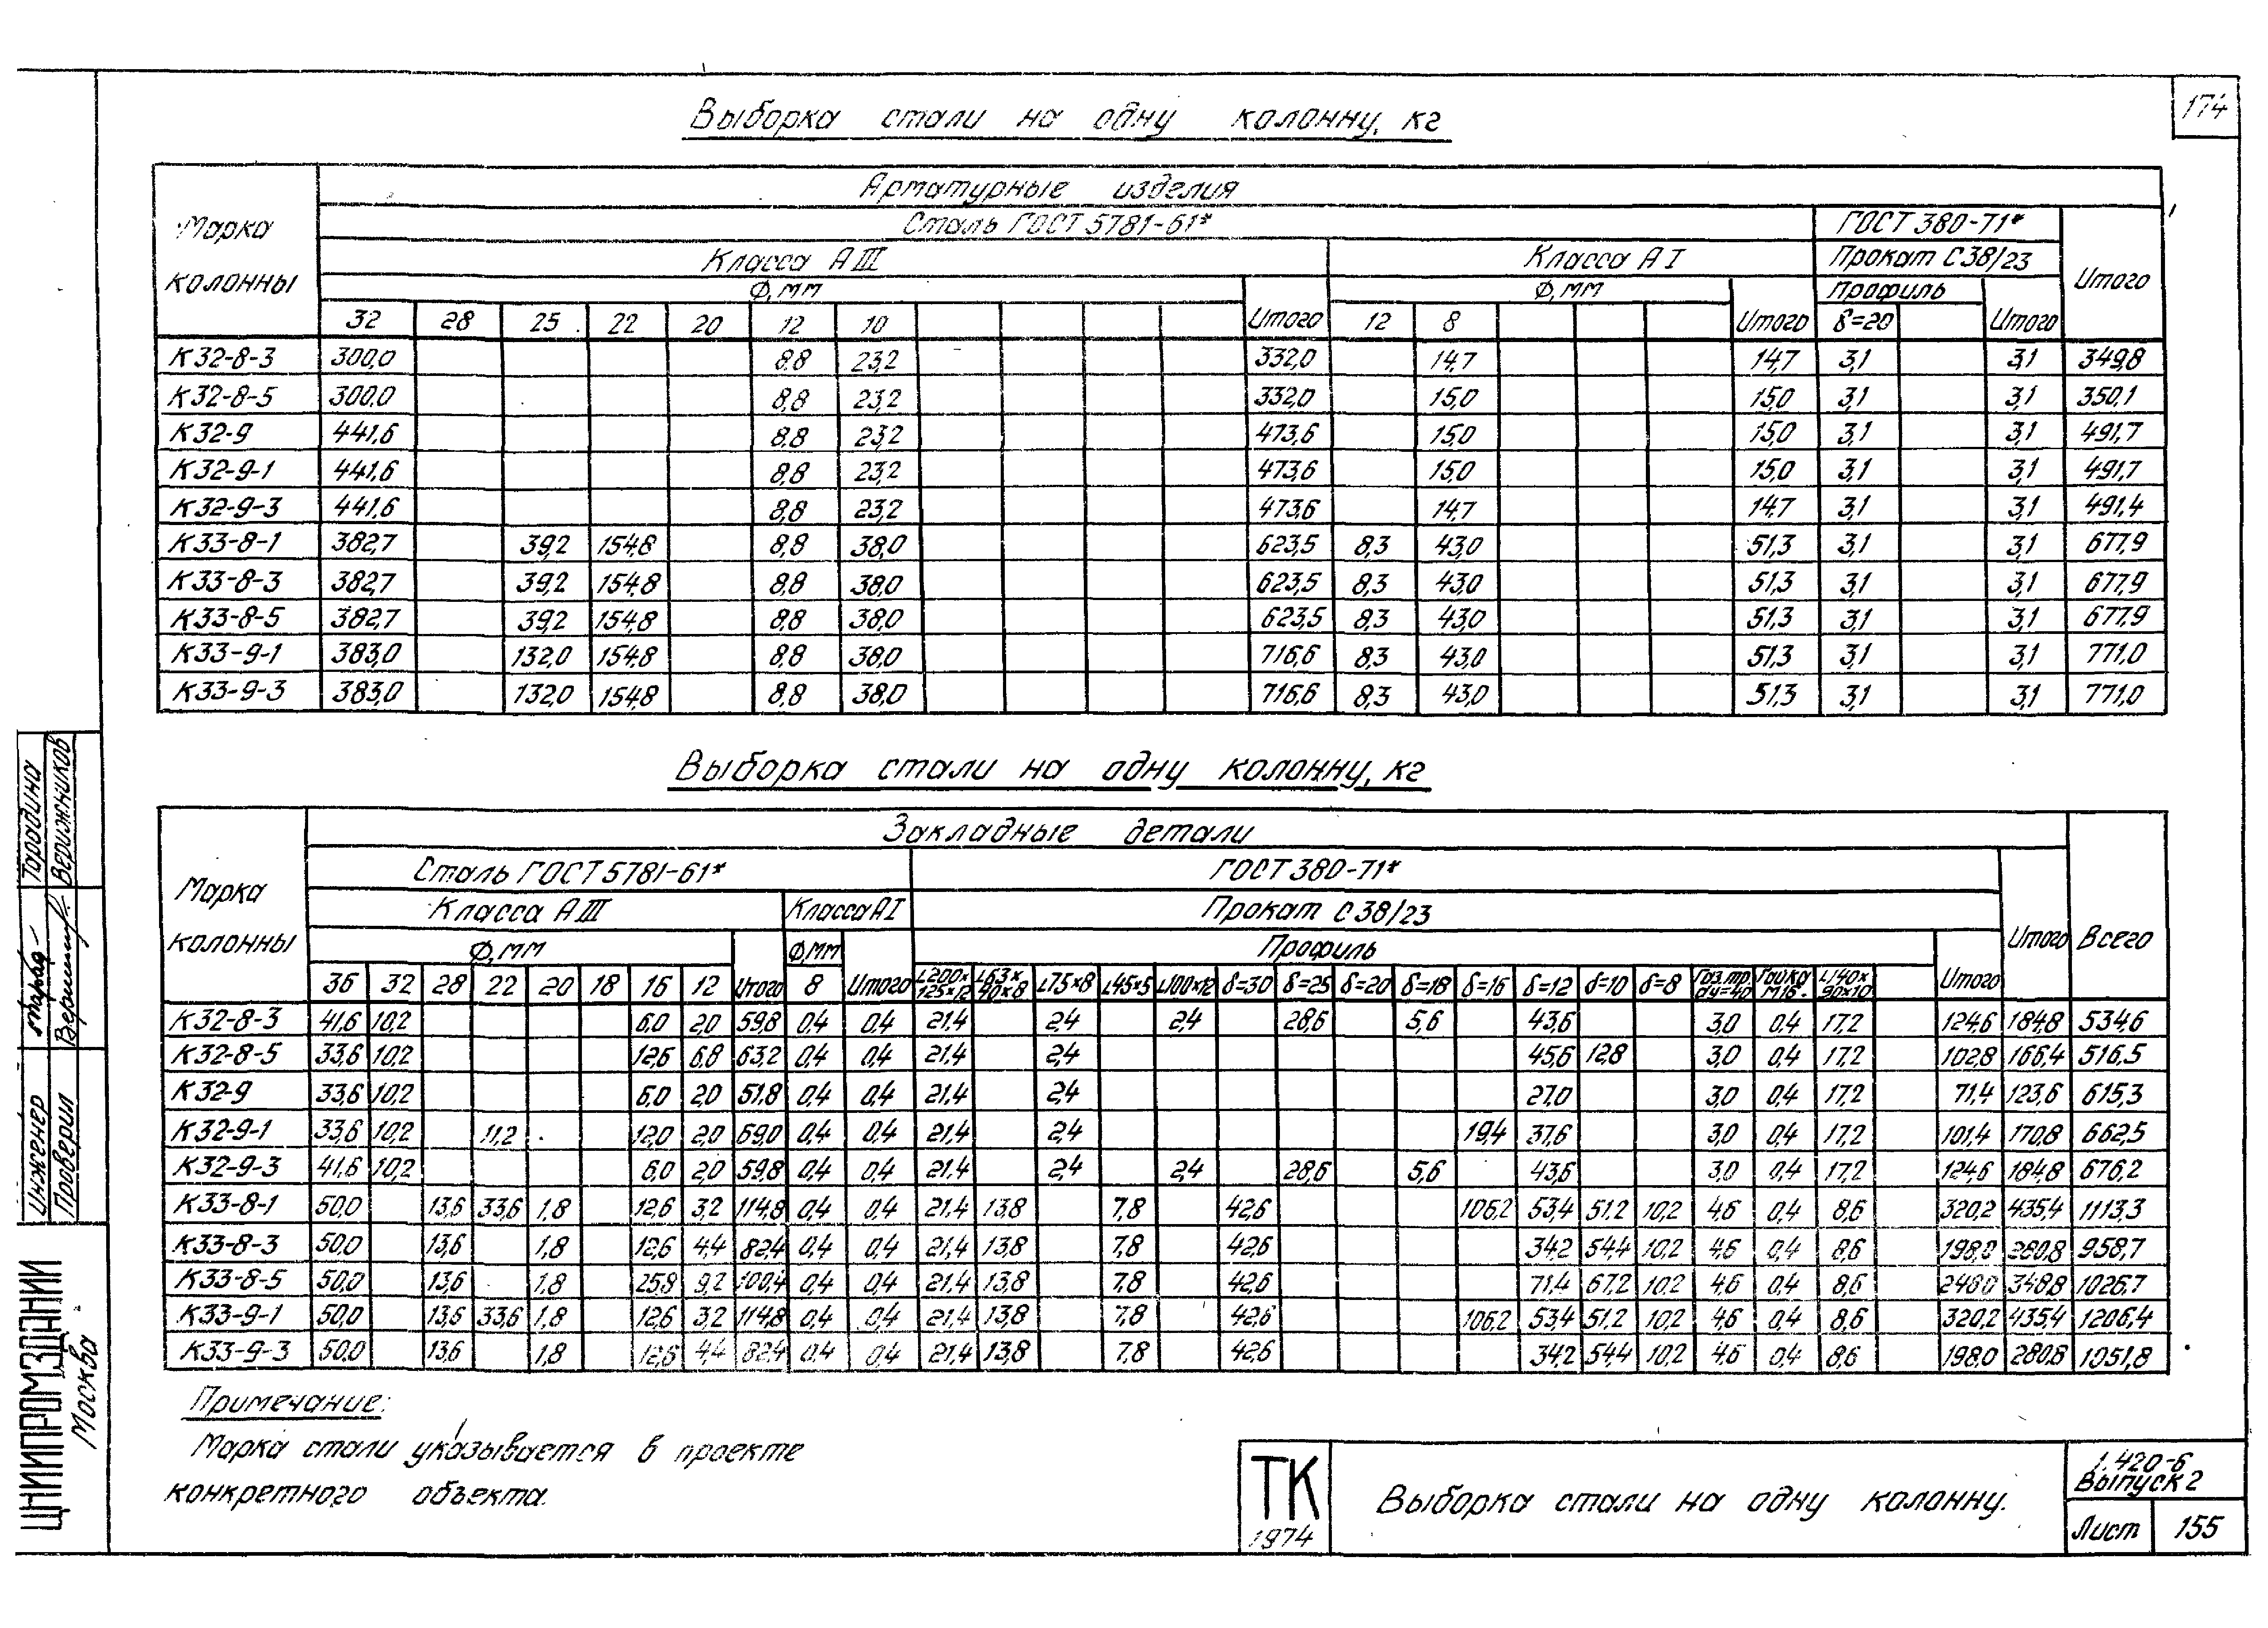 174
Выборка стали на одну колонну, кг
Марка колонны
Арматурные изделия
Сталь ГОСТ 5781-61* ГОСТ 380-71* Итого
Класса А III Класса А I Прокат С38/23
Ф, мм Итого Ф, мм Итого Профиль Итого
32 28 25 22 20 12 10 12 8 δ=20
К32-8-3 300,0 8,8 23,2 332,0 14,7 14,7 3,1 3,1 349,8
К32-8-5 300,0 8,8 23,2 332,0 15,0 15,0 3,1 3,1 350,1
К32-9 441,6 8,8 23,2 473,6 15,0 15,0 3,1 3,1 491,7
К32-9-1 441,6 8,8 23,2 473,6 15,0 15,0 3,1 3,1 491,7
К32-9-3 441,6 8,8 23,2 473,6 14,7 14,7 3,1 3,1 491,4
К33-8-1 382,7 39,2 154,8 8,8 38,0 623,5 8,3 43,0 51,3 3,1 3,1 677,9
К33-8-3 382,7 39,2 154,8 8,8 38,0 623,5 8,3 43,0 51,3 3,1 3,1 677,9
К33-8-5 382,7 39,2 154,8 8,8 38,0 623,5 8,3 43,0 51,3 3,1 3,1 677,9
К33-9-1 383,0 132,0 154,8 8,8 38,0 716,6 8,3 43,0 51,3 3,1 3,1 771,0
К33-9-3 383,0 132,0 154,8 8,8 38,0 716,6 8,3 43,0 51,3 3,1 3,1 771,0
Выборка стали на одну колонну, кг
Марка колонны
Закладные детали Всего
Сталь ГОСТ 5781-61* ГОСТ 380-71* Итого
Класса А III Класса А I Прокат С 38/23
Ф, мм Итого Ф, мм Итого Профиль Итого
36 32 28 22 20 18 16 12 8 L200×125×12 L63×40×8 L75×8 L45×5 L100×12 δ=30 δ=25 δ=20 δ=18 δ=16 δ=12 δ=10 δ=8 Газ.тр. dу=40 Гайка М16 L140×90×10
К32-8-3 41,6 10,2 6,0 2,0 59,8 0,4 0,4 21,4 2,4 2,4 28,6 5,6 43,6 3,0 0,4 17,2 124,6 184,8 534,6
К32-8-5 33,6 10,2 12,6 6,8 63,2 0,4 0,4 21,4 2,4 45,6 12,8 3,0 0,4 17,2 102,8 166,4 516,5
К32-9 33,6 10,2 6,0 2,0 51,8 0,4 0,4 21,4 2,4 27,0 3,0 0,4 17,2 71,4 123,6 615,3
К32-9-1 33,6 10,2 11,2 12,0 2,0 69,0 0,4 0,4 21,4 2,4 19,4 37,6 3,0 0,4 17,2 101,4 170,8 662,5
К32-9-3 41,6 10,2 6,0 2,0 59,8 0,4 0,4 21,4 2,4 2,4 28,6 5,6 43,6 3,0 0,4 17,2 124,6 184,8 676,2
К33-8-1 50,0 13,6 33,6 1,8 12,6 3,2 114,8 0,4 0,4 21,4 13,8 7,8 42,6 106,2 53,4 51,2 10,2 4,6 0,4 8,6 320,2 435,4 1113,3
К33-8-3 50,0 13,6 1,8 12,6 4,4 82,4 0,4 0,4 21,4 13,8 7,8 42,6 34,2 54,4 10,2 4,6 0,4 8,6 198,0 280,8 958,7
К33-8-5 50,0 13,6 1,8 25,8 9,2 100,4 0,4 0,4 21,4 13,8 7,8 42,6 71,4 67,2 10,2 4,6 0,4 8,6 248,0 348,8 1026,7
К33-9-1 50,0 13,6 33,6 1,8 12,6 3,2 114,8 0,4 0,4 21,4 13,8 7,8 42,6 106,2 53,4 51,2 10,2 4,6 0,4 8,6 320,2 435,4 1206,4
К33-9-3 50,0 13,6 1,8 12,6 4,4 82,4 0,4 0,4 21,4 13,8 7,8 42,6 34,2 54,4 10,2 4,6 0,4 8,6 198,0 280,8 1051,8
Примечание:
Марка стали указывается в проекте
конкретного объекта.
ТК
1974
Выборка стали на одну колонну.
1.420-6
Выпуск 2
Лист 155
Инженер Тарадина
Проверил Верижников
ЦНИИПРОМЗДАНИЙ
Москва